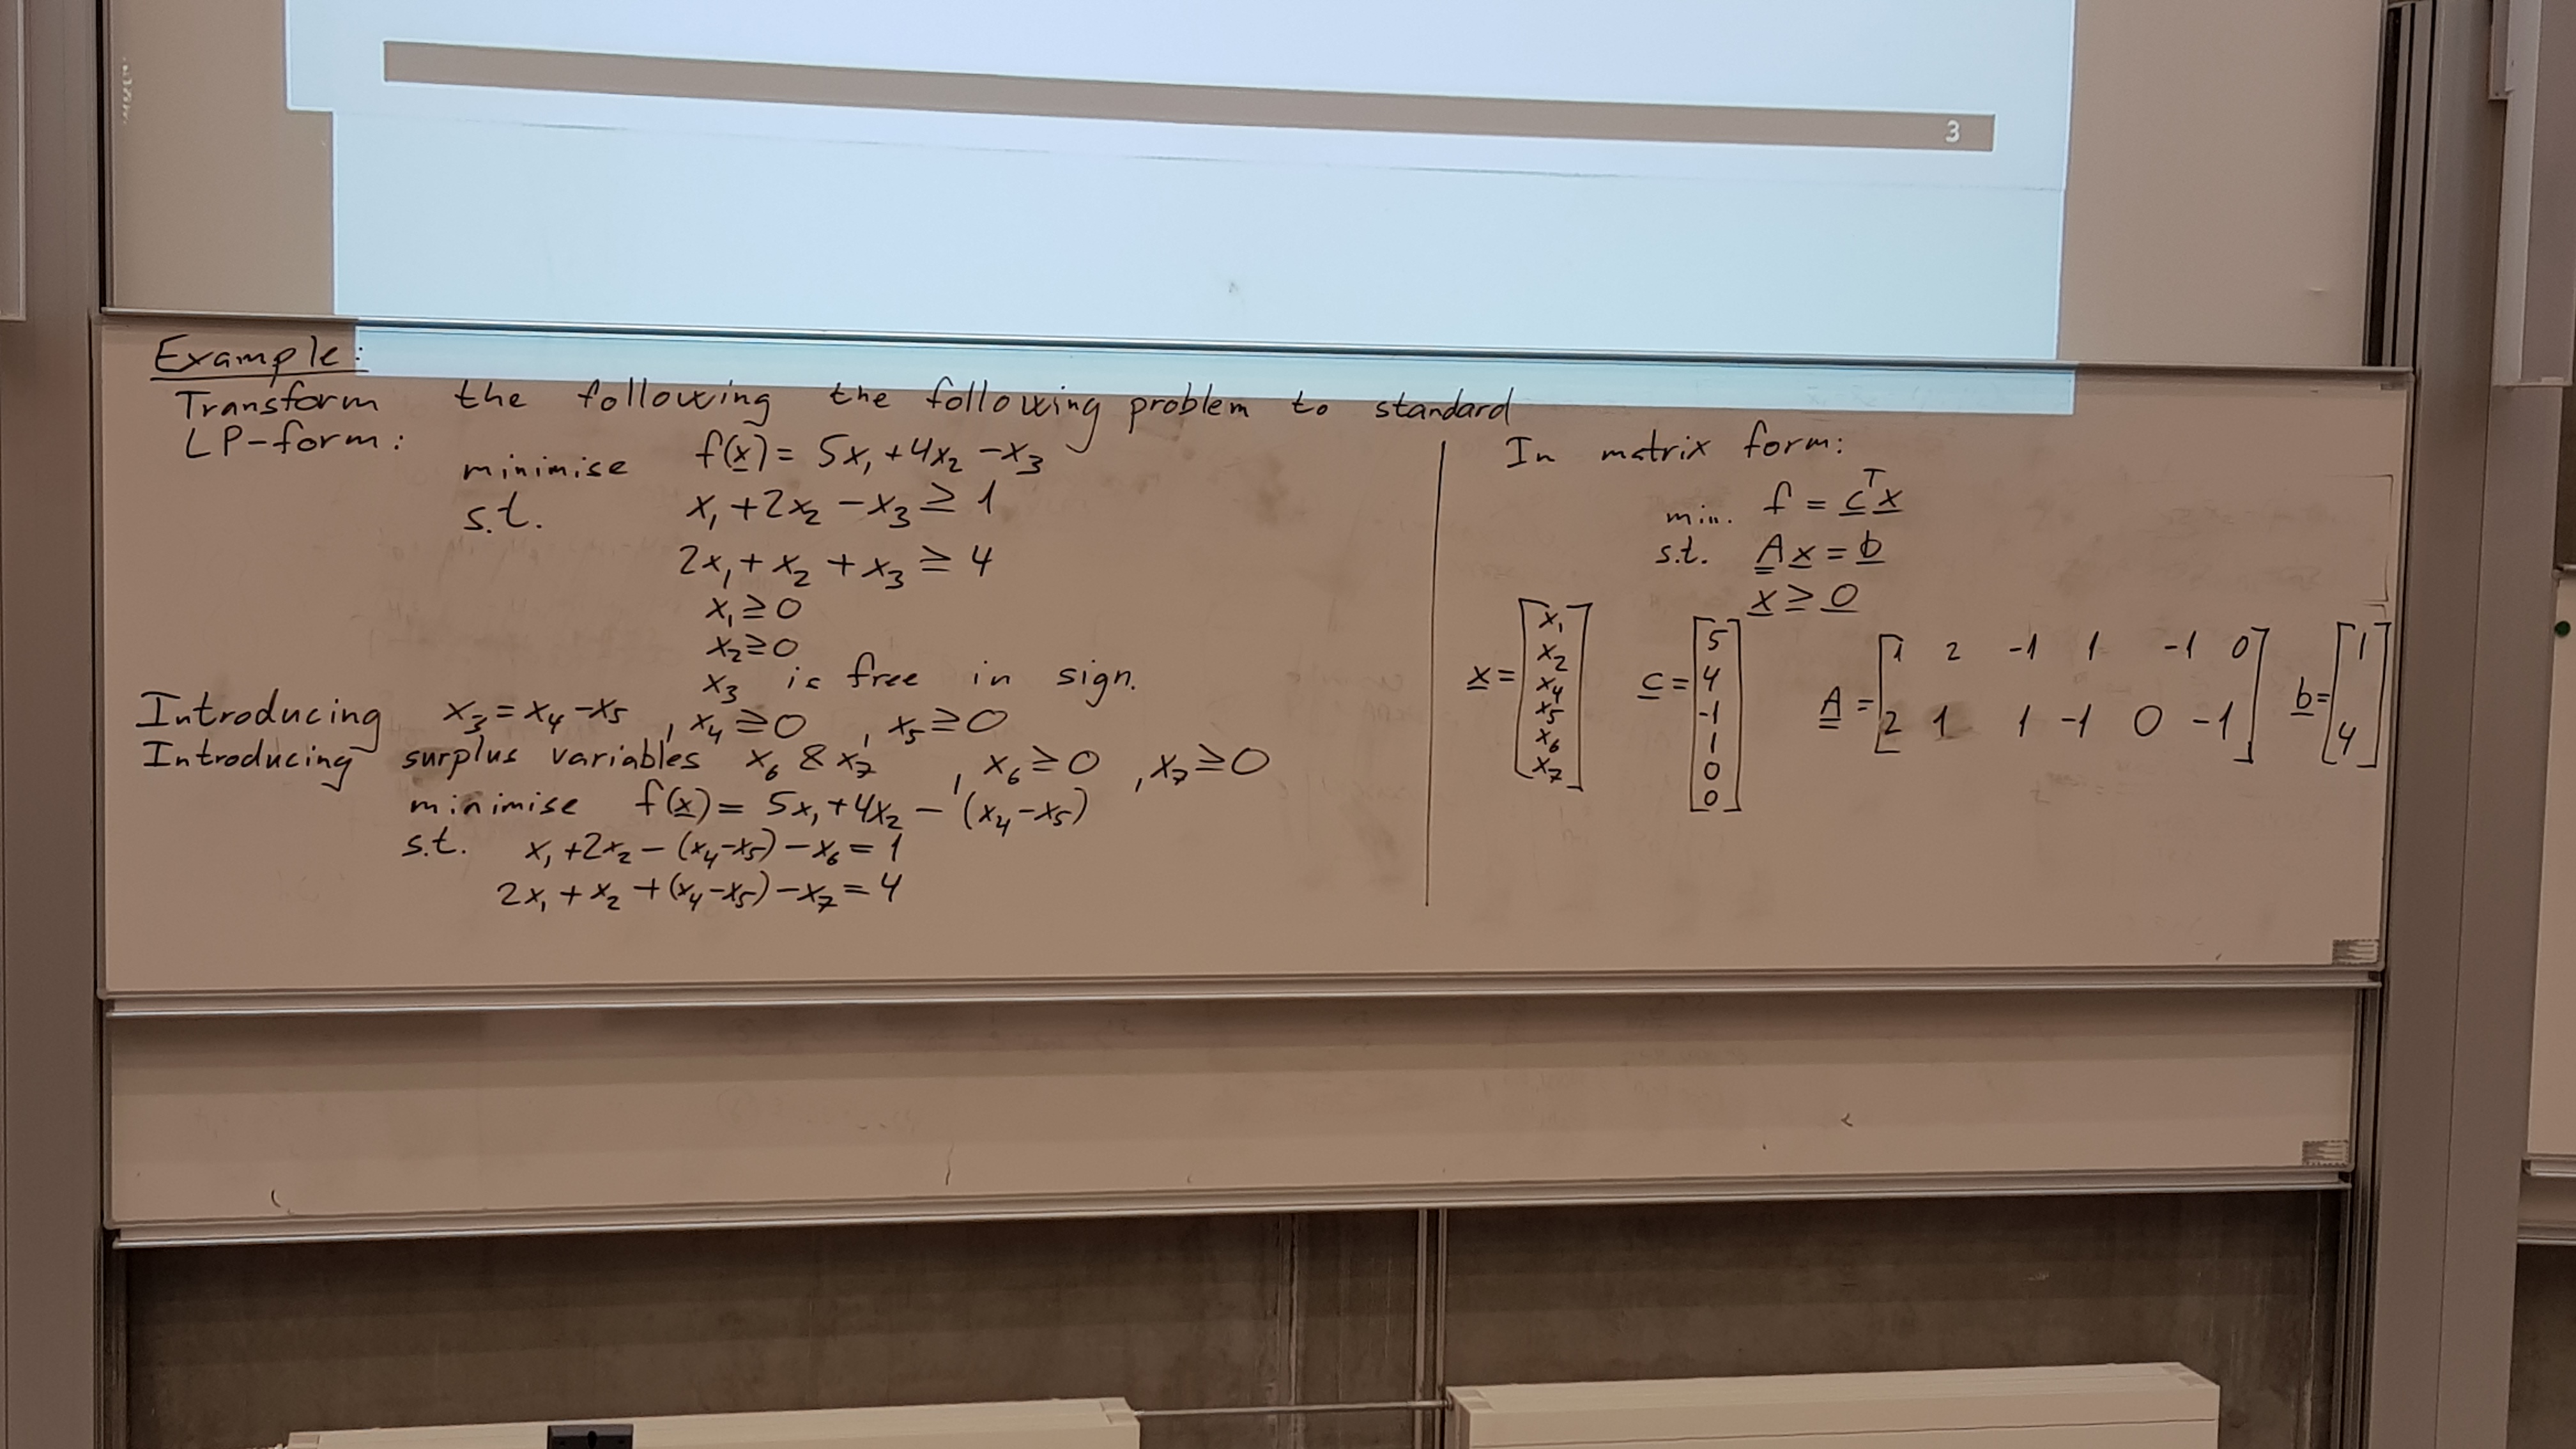 3
Example:
Transform the following the following problem to standard
LP-form:
minimise f(x) = 5x₁ + 4x₂ - x₃
s.t. x₁ + 2x₂ - x₃ ≥ 1
2x₁ + x₂ + x₃ ≥ 4
x₁ ≥ 0
x₂ ≥ 0
x₃ is free in sign.
Introducing x₃ = x₄ - x₅ , x₄ ≥ 0 , x₅ ≥ 0
Introducing surplus variables x₆ & x₇ , x₆ ≥ 0 , x₇ ≥ 0
minimise f(x) = 5x₁ + 4x₂ - (x₄ - x₅)
s.t. x₁ + 2x₂ - (x₄ - x₅) - x₆ = 1
2x₁ + x₂ + (x₄ - x₅) - x₇ = 4
In matrix form:
min. f = cᵀx
s.t. A x = b
x ≥ 0
x = [x₁ x₂ x₄ x₅ x₆ x₇]
c = [5 4 -1 1 0 0]
A = [1 2 -1 1 -1 0
2 1 1 -1 0 -1]
b = [1 4]